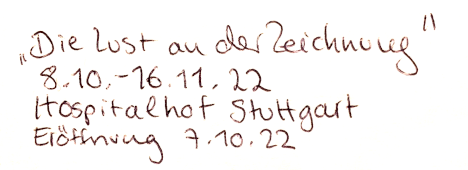 „Die Lust an der Zeichnung"
8.10.-16.11.22
Hospitalhof Stuttgart
Eröffnung 7.10.22